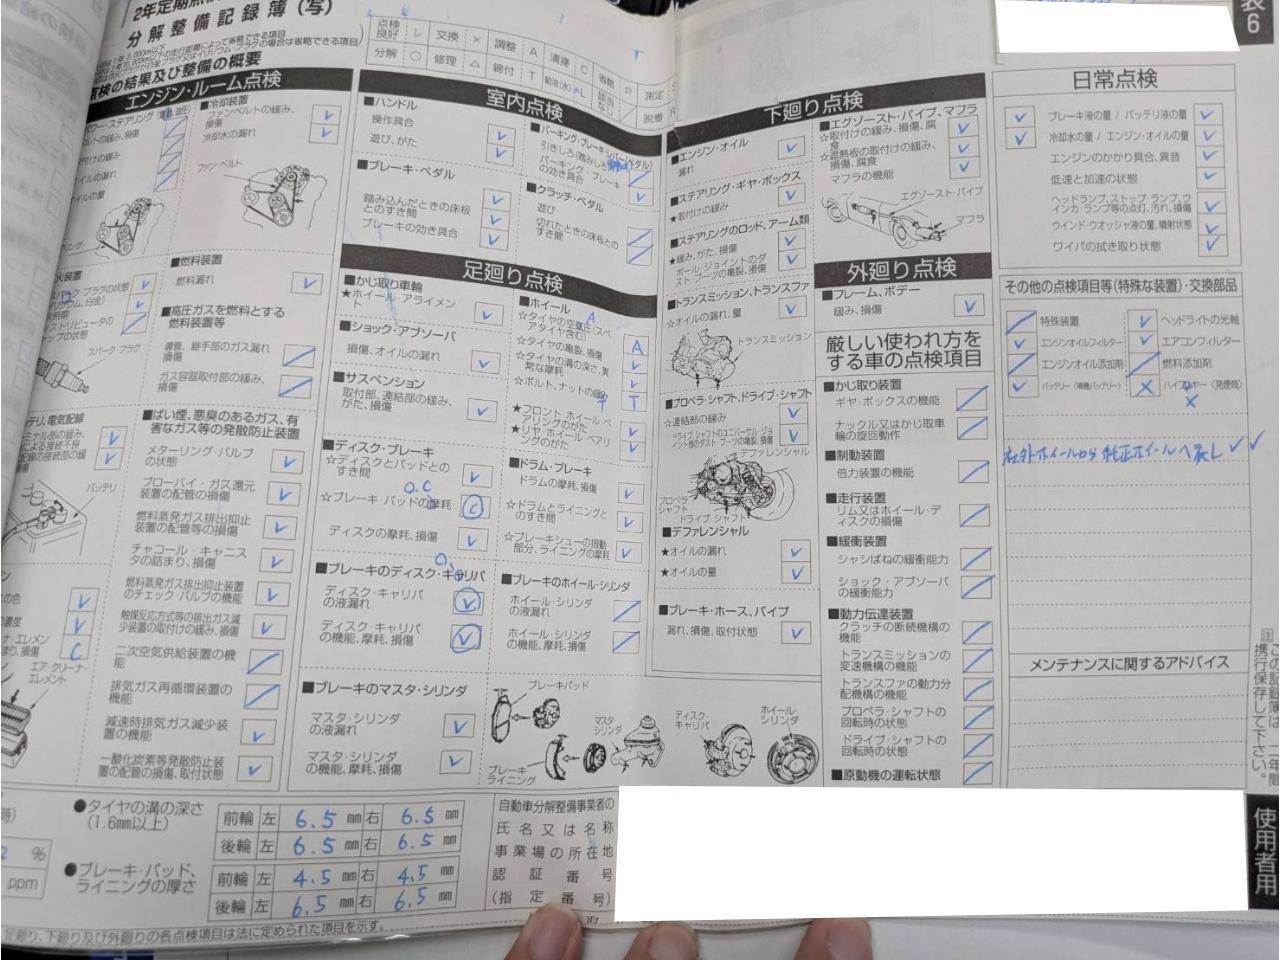 2年定期点検
分解整備記録簿(写)
点検の結果及び整備の概要
点検良好 レ 交換 × 調整 A 清掃 C 省略 P 測定
分解 ○ 修理 △ 締付 T 給油(水) L 該当なし / 脱着
エンジン・ルーム点検
■冷却装置
ファンベルトの緩み、損傷
冷却水の漏れ
ファン・ベルト
■燃料装置
燃料漏れ
■高圧ガスを燃料とする燃料装置等
導管、継手部のガス漏れ損傷
ガス容器取付部の緩み、損傷
スパーク・プラグ
■ばい煙、悪臭のあるガス、有害なガス等の発散防止装置
メターリング・バルブの状態
ブローバイ・ガス還元装置の配管の損傷
燃料蒸発ガス排出抑止装置の配管等の損傷
チャコール・キャニスタの詰まり、損傷
燃料蒸発ガス排出抑止装置のチェック・バルブの機能
触媒反応方式等の排出ガス減少装置の取付けの緩み、損傷
二次空気供給装置の機能
排気ガス再循環装置の機能
減速時排気ガス減少装置の機能
一酸化炭素等発散防止装置の配管の損傷、取付状態
バッテリ
エア・クリーナ・エレメント
室内点検
■ハンドル
操作具合
遊び、がた
■ブレーキ・ペダル
踏み込んだときの床板とのすき間
ブレーキの効き具合
■パーキング・ブレーキ・レバー(ペダル)
引きしろ(踏みしろ)
パーキング・ブレーキの効き具合
■クラッチ・ペダル
遊び
切れたときの床板とのすき間
足廻り点検
■かじ取り車輪
★ホイール・アライメント
■ショック・アブソーバ
損傷、オイルの漏れ
■サスペンション
取付部、連結部の緩み、がた、損傷
■ホイール
☆タイヤの空気圧(スペアタイヤ含む) A
☆タイヤの亀裂、損傷
☆タイヤの溝の深さ、異常な摩耗
☆ボルト、ナットの緩み T
★フロント・ホイール・ベアリングのがた
★リヤ・ホイール・ベアリングのがた
■ディスク・ブレーキ
☆ディスクとパッドとのすき間
☆ブレーキ・パッドの摩耗 C
ディスクの摩耗、損傷
■ドラム・ブレーキ
ドラムの摩耗、損傷
☆ドラムとライニングとのすき間
☆ブレーキシューの摺動部分、ライニングの摩耗
■ブレーキのディスク・キャリパ
ディスク・キャリパの液漏れ
ディスク・キャリパの機能、摩耗、損傷
■ブレーキのホイール・シリンダ
ホイール・シリンダの液漏れ
ホイール・シリンダの機能、摩耗、損傷
■ブレーキのマスタ・シリンダ
マスタ・シリンダの液漏れ
マスタ・シリンダの機能、摩耗、損傷
ブレーキパッド
ブレーキライニング
マスタシリンダ
ディスク・キャリパ
ホイール・シリンダ
下廻り点検
■エンジン・オイル
漏れ
■ステアリング・ギヤ・ボックス
★取付けの緩み
■ステアリングのロッド、アーム類
★緩み、がた、損傷
ボール・ジョイントのダスト・ブーツの亀裂、損傷
■トランスミッション、トランスファ
☆オイルの漏れ、量
トランスミッション
■プロペラ・シャフト、ドライブ・シャフト
☆連結部の緩み
ドライブ・シャフトのユニバーサル・ジョイント部のダスト・ブーツの亀裂、損傷
デファレンシャル
プロペラシャフト
ドライブ・シャフト
■デファレンシャル
★オイルの漏れ
★オイルの量
■ブレーキ・ホース、パイプ
漏れ、損傷、取付状態
■エグゾースト・パイプ、マフラ
☆取付けの緩み、損傷、腐食
☆遮熱板の取付けの緩み、損傷、腐食
マフラの機能
エグゾースト・パイプ
マフラ
外廻り点検
■フレーム、ボデー
緩み、損傷
厳しい使われ方をする車の点検項目
■かじ取り装置
ギヤ・ボックスの機能
ナックル又はかじ取車輪の旋回動作
■制動装置
倍力装置の機能
■走行装置
リム又はホイール・ディスクの損傷
■緩衝装置
シャシばねの緩衝能力
ショック・アブソーバの緩衝能力
■動力伝達装置
クラッチの断続機構の機能
トランスミッションの変速機構の機能
トランスファの動力分配機構の機能
プロペラ・シャフトの回転時の状態
ドライブ・シャフトの回転時の状態
■原動機の運転状態
日常点検
ブレーキ液の量/バッテリ液の量
冷却水の量/エンジン・オイルの量
エンジンのかかり具合、異音
低速と加速の状態
ヘッドランプ、ストップ・ランプ、ウインカ・ランプ等の点灯、汚れ、損傷
ウインド・ウオッシャ液の量、噴射状態
ワイパの拭き取り状態
その他の点検項目等(特殊な装置)・交換部品
特殊装置 ヘッドライトの光軸
エンジンオイルフィルター エアコンフィルター
エンジンオイル添加剤 燃料添加剤
バッテリー(補機バッテリー)
社外ホイールから純正ホイールへ戻し
メンテナンスに関するアドバイス
表6
この記録簿は、二年間携行保存して下さい。
使用者用
% ppm
●タイヤの溝の深さ(1.6mm以上)
前輪 左 6.5 mm 右 6.5 mm
後輪 左 6.5 mm 右 6.5 mm
●ブレーキ・パッド、ライニングの厚さ
前輪 左 4.5 mm 右 4.5 mm
後輪 左 6.5 mm 右 6.5 mm
自動車分解整備事業者の
氏名又は名称
事業場の所在地
認証番号
(指定番号)
足廻り、下廻り及び外廻りの各点検項目は法に定められた項目を示す。